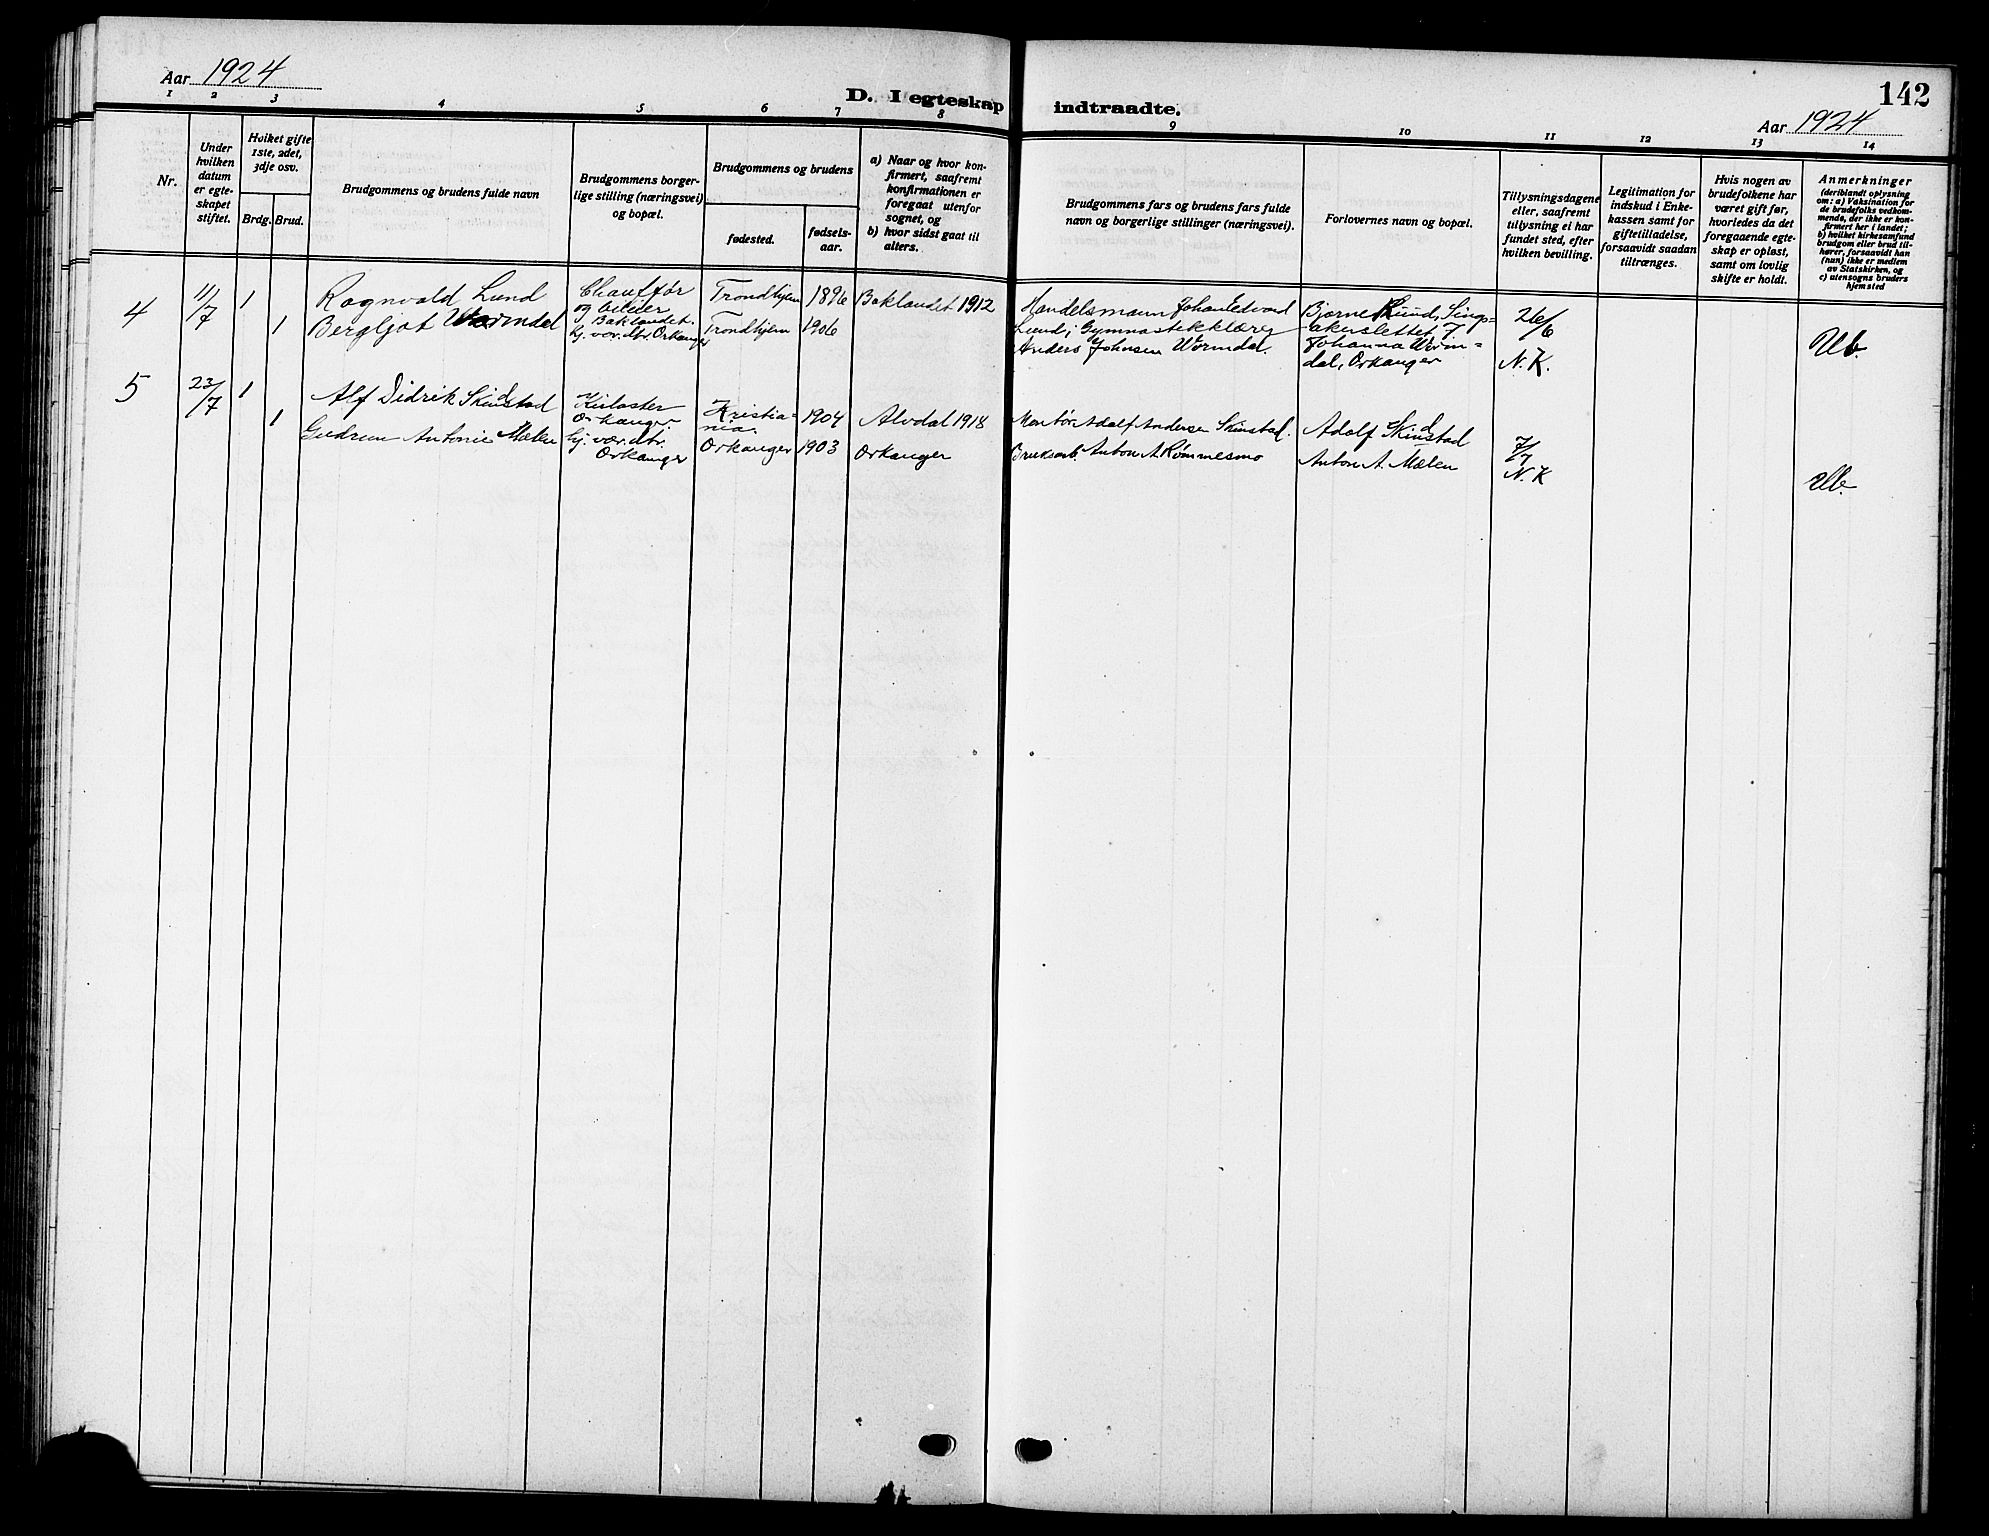 Aar 1924
D. I egteskap indtraadte.
142
Aar 1924
1 2 3 4 5 6 7 8 9 10 11 12 13 14
Nr.
Under
hvilken
datum
er egte-
skapet
stiftet.
Hvilket gifte
1ste, 2det,
3dje osv.
Brdg. Brud.
Brudgommens og brudens fulde navn
Brudgommens borger-
lige stilling (næringsvei)
og bopæl.
Brudgommens og brudens
fødested.
fødsels-
aar.
a) Naar og hvor kon-
firmert, saafremt
konfirmationen er
foregaat utenfor
sognet, og
b) hvor sidst gaat til
alters.
Brudgommens fars og brudens fars fulde
navn og borgerlige stillinger (næringsvei).
Forlovernes navn og bopæl.
Tillysningsdagene
eller, saafremt
tillysning ei har
fundet sted, efter
hvilken bevilling.
Legitimation for
indskud i Enke-
kassen samt for
giftetilladelse,
forsaavidt saadan
tiltrænges.
Hvis nogen av
brudefolkene har
været gift før,
hvorledes da det
foregaaende egte-
skap er opløst,
samt om lovlig
skifte er holdt.
Anmerkninger
(deriblandt oplysning
om: a) Vaksination for
de brudefolks vedkom-
mende, der ikke er kon-
firmert her i landet;
b) hvilket kirkesamfund
brudgom eller brud til-
hører, forsaavidt han
(hun) ikke er medlem
av Statskirken, og
c) utensogns bruders
hjemsted
4
11/7
1
1
Ragnvald Lund
Bergljot Wormdal
Chauffør
og bileier
Baklandet.
hj. vær. dtr. Orkanger
Trondhjem 1896
Trondhjem 1906
Baklandet 1912
Handelsmann Johan Edvard
Lund; Gymnastikklærer
Anders Johnsen Wormdal.
Bjarne Lund, Sings-
akerslettet 7
Johanna Worm-
dal, Orkanger
26/6
N. K.
Ub.
5
23/7
1
1
Alf Didrik Skindstad
Gudrun Antonie Mælen
Orkanger
hj. vær. dtr.
Orkanger
Kristia-
nia. 1904
Orkanger 1903
Alvdal 1918
Orkanger
Montør Adolf Andersen Skinstad.
Bruksarb. Anton A. Rømmesmo
Adolf Skindstad
Anton A. Mælen
7/7
N. K
Ub.